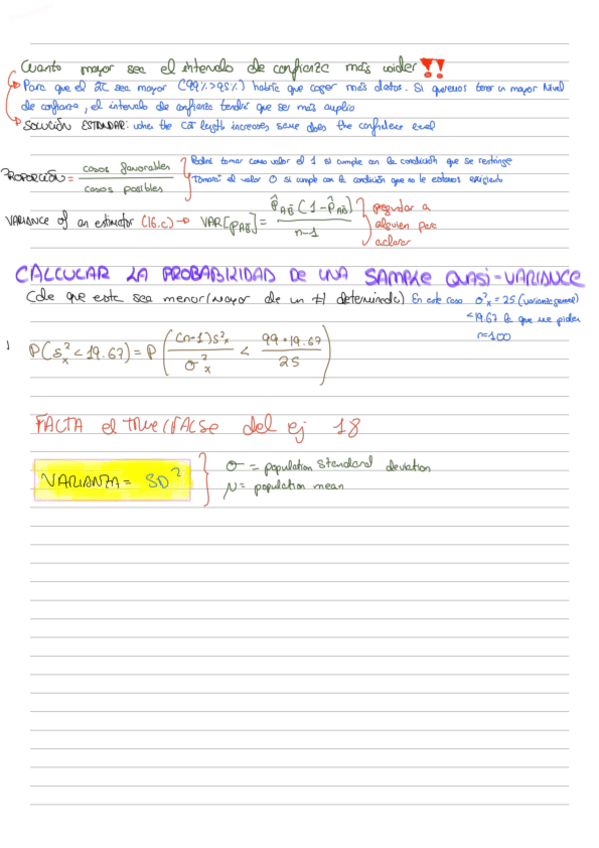 Cuanto mayor sea el intervalo de confianza más wider !!
Para que el IC sea mayor (99%>95%) habría que coger más datos. Si queremos tener un mayor Nivel
de confianza, el intervalo de confianza tendrá que ser más amplio
SOLUCIÓN ESTANDAR: when the length increases does the confidence level
PROPORCIÓN = casos favorables / casos posibles
Podrá tomar como valor el 1 si cumple con la condición que se restringe
Tomará el valor 0 si cumple con la condición que no le estamos exigiendo
VARIANCE of an estimator (16.c) → VAR[p̂AB] = p̂AB (1-p̂AB) / n-1
preguntar a
alguien para
aclarar
CALCULAR LA PROBABILIDAD DE UNA SAMPLE QUASI-VARIANCE
(de que esta sea menor/mayor de un #1 determinado) En este caso σ²x = 25 (variance)
<19.67 lo que me piden
n=100
P(s²x < 19.67) = P( (n-1)s²x / σ²x < 99·19.67 / 25 )
FALTA el true/FALSE del ej 18
VARIANZA = SD²
σ = population standard deviation
μ = population mean